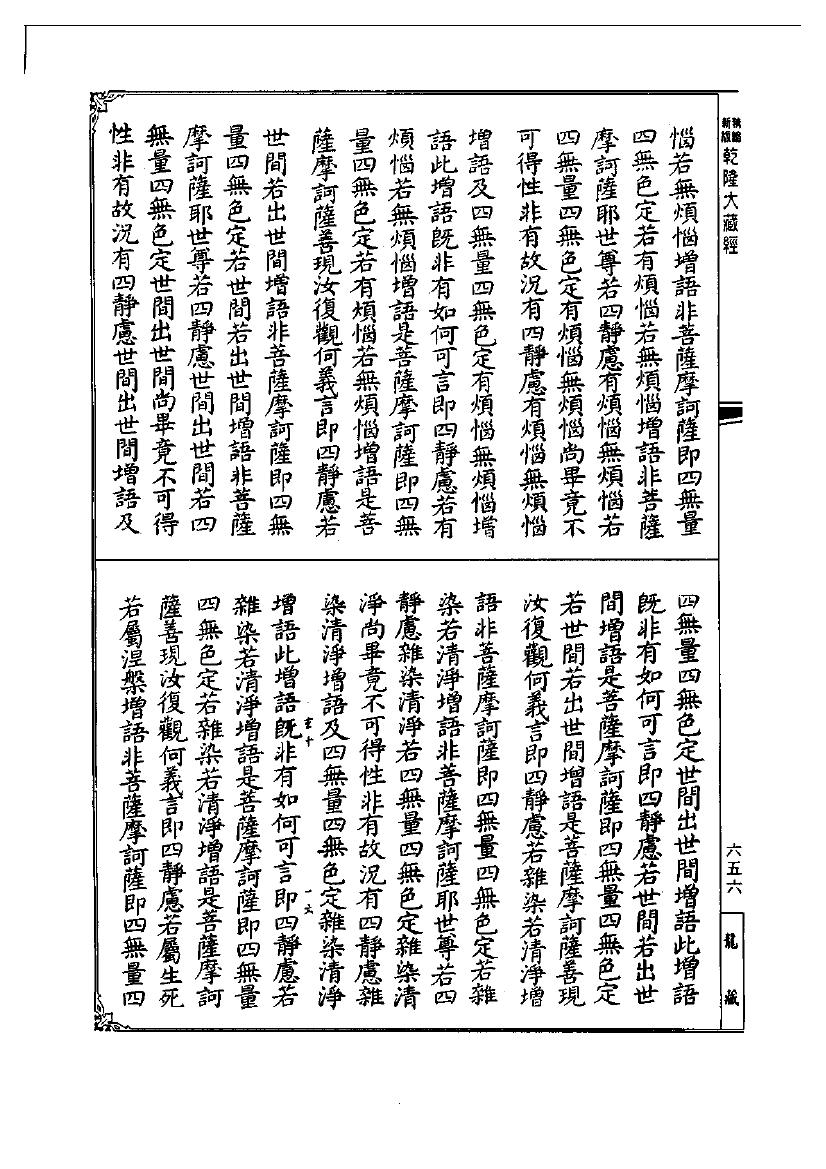 新編
縮版
乾隆大藏經
惱若無煩惱增語非菩薩摩訶薩即四無量
四無色定若有煩惱若無煩惱增語非菩薩
摩訶薩耶世尊若四靜慮有煩惱無煩惱若
四無量四無色定有煩惱無煩惱尚畢竟不
可得性非有故況有四靜慮有煩惱無煩惱
增語及四無量四無色定有煩惱無煩惱增
語此增語既非有如何可言即四靜慮若有
煩惱若無煩惱增語是菩薩摩訶薩即四無
量四無色定若有煩惱若無煩惱增語是菩
薩摩訶薩善現汝復觀何義言即四靜慮若
世間若出世間增語非菩薩摩訶薩即四無
量四無色定若世間若出世間增語非菩薩
摩訶薩耶世尊若四靜慮世間出世間若四
無量四無色定世間出世間尚畢竟不可得
性非有故況有四靜慮世間出世間增語及
四無量四無色定世間出世間增語此增語
既非有如何可言即四靜慮若世間若出世
間增語是菩薩摩訶薩即四無量四無色定
若世間若出世間增語是菩薩摩訶薩善現
汝復觀何義言即四靜慮若雜染若清淨增
語非菩薩摩訶薩即四無量四無色定若雜
染若清淨增語非菩薩摩訶薩耶世尊若四
靜慮雜染清淨若四無量四無色定雜染清
淨尚畢竟不可得性非有故況有四靜慮雜
染清淨增語及四無量四無色定雜染清淨
增語此增語既非有如何可言即四靜慮若
雜染若清淨增語是菩薩摩訶薩即四無量
四無色定若雜染若清淨增語是菩薩摩訶
薩善現汝復觀何義言即四靜慮若屬生死
若屬涅槃增語非菩薩摩訶薩即四無量四
六五六
龍藏